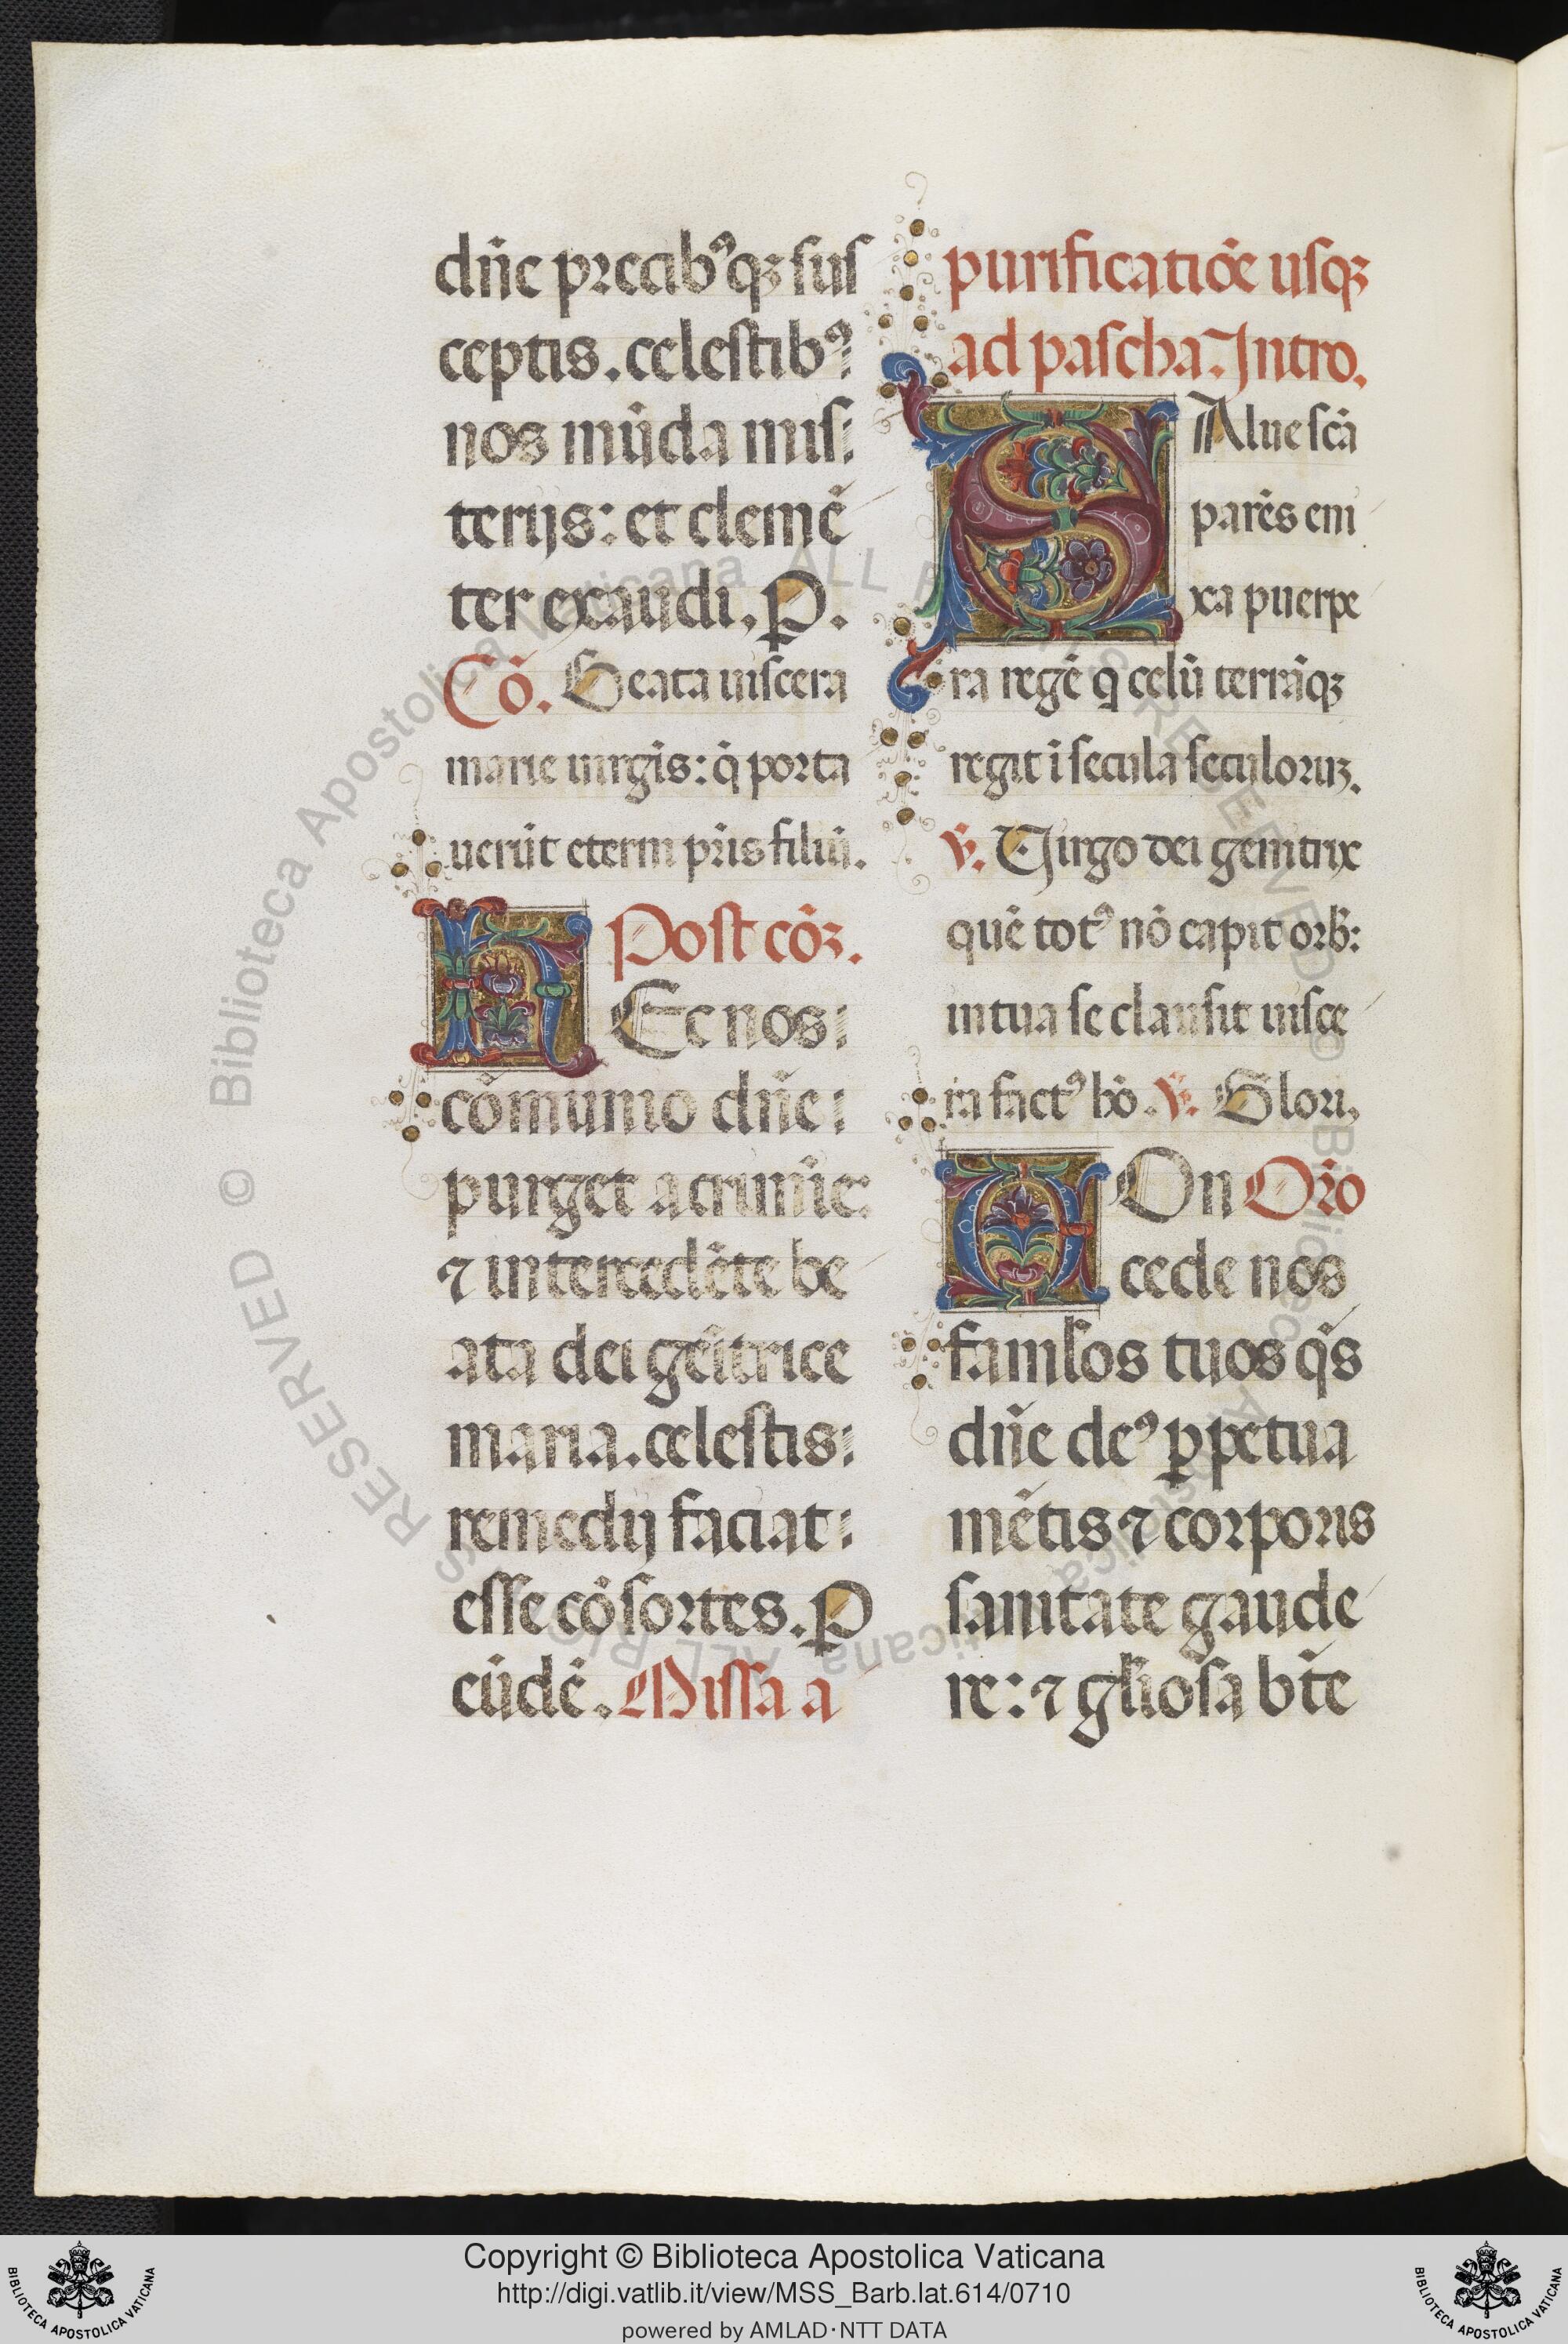 dñe precibꝰqꝫ sus
ceptis. celestibꝰ
nos mūda mis
terijs: et clemē
ter exaudi. P.
Cō. Beata uiscera
marie uirgīs: q̄ porta
uerūt eterni pr̄is filiū.
Post cōꝫ.
HEc nos
cōmunio dñe
purget a crimīe:
⁊ intercedēte be
ata dei genītrice
maria. celestis
remedij faciat
esse cōsortes. P
eūdē. Missa a
purificatiōe usqꝫ
ad pascha. Intro.
SAlue scā
parēs eni
xa puerpe
ra regē q̄ celū terrāqꝫ
regit ī secula seculoruꝫ.
℣. Virgo dei genitrix
quē totꝰ nō capit orb:
in tua se clausit uisce
ra factꝰ hō. ℣. Glori.
COn Or̄o
cede nos
famłos tuos q̄s
dñe deꝰ ꝑpetua
mētis ⁊ corporis
sanitate gaude
re: ⁊ gl̄iosa bt̄e
Copyright © Biblioteca Apostolica Vaticana
http://digi.vatlib.it/view/MSS_Barb.lat.614/0710
powered by AMLAD·NTT DATA
BIBLIOTECA APOSTOLICA VATICANA
BIBLIOTECA APOSTOLICA VATICANA